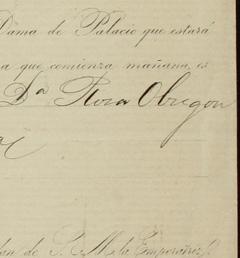 Dama de Palacio que estará
a que comienza mañana, es
Dª Rosa Obregon
de S. M. la Emperatriz